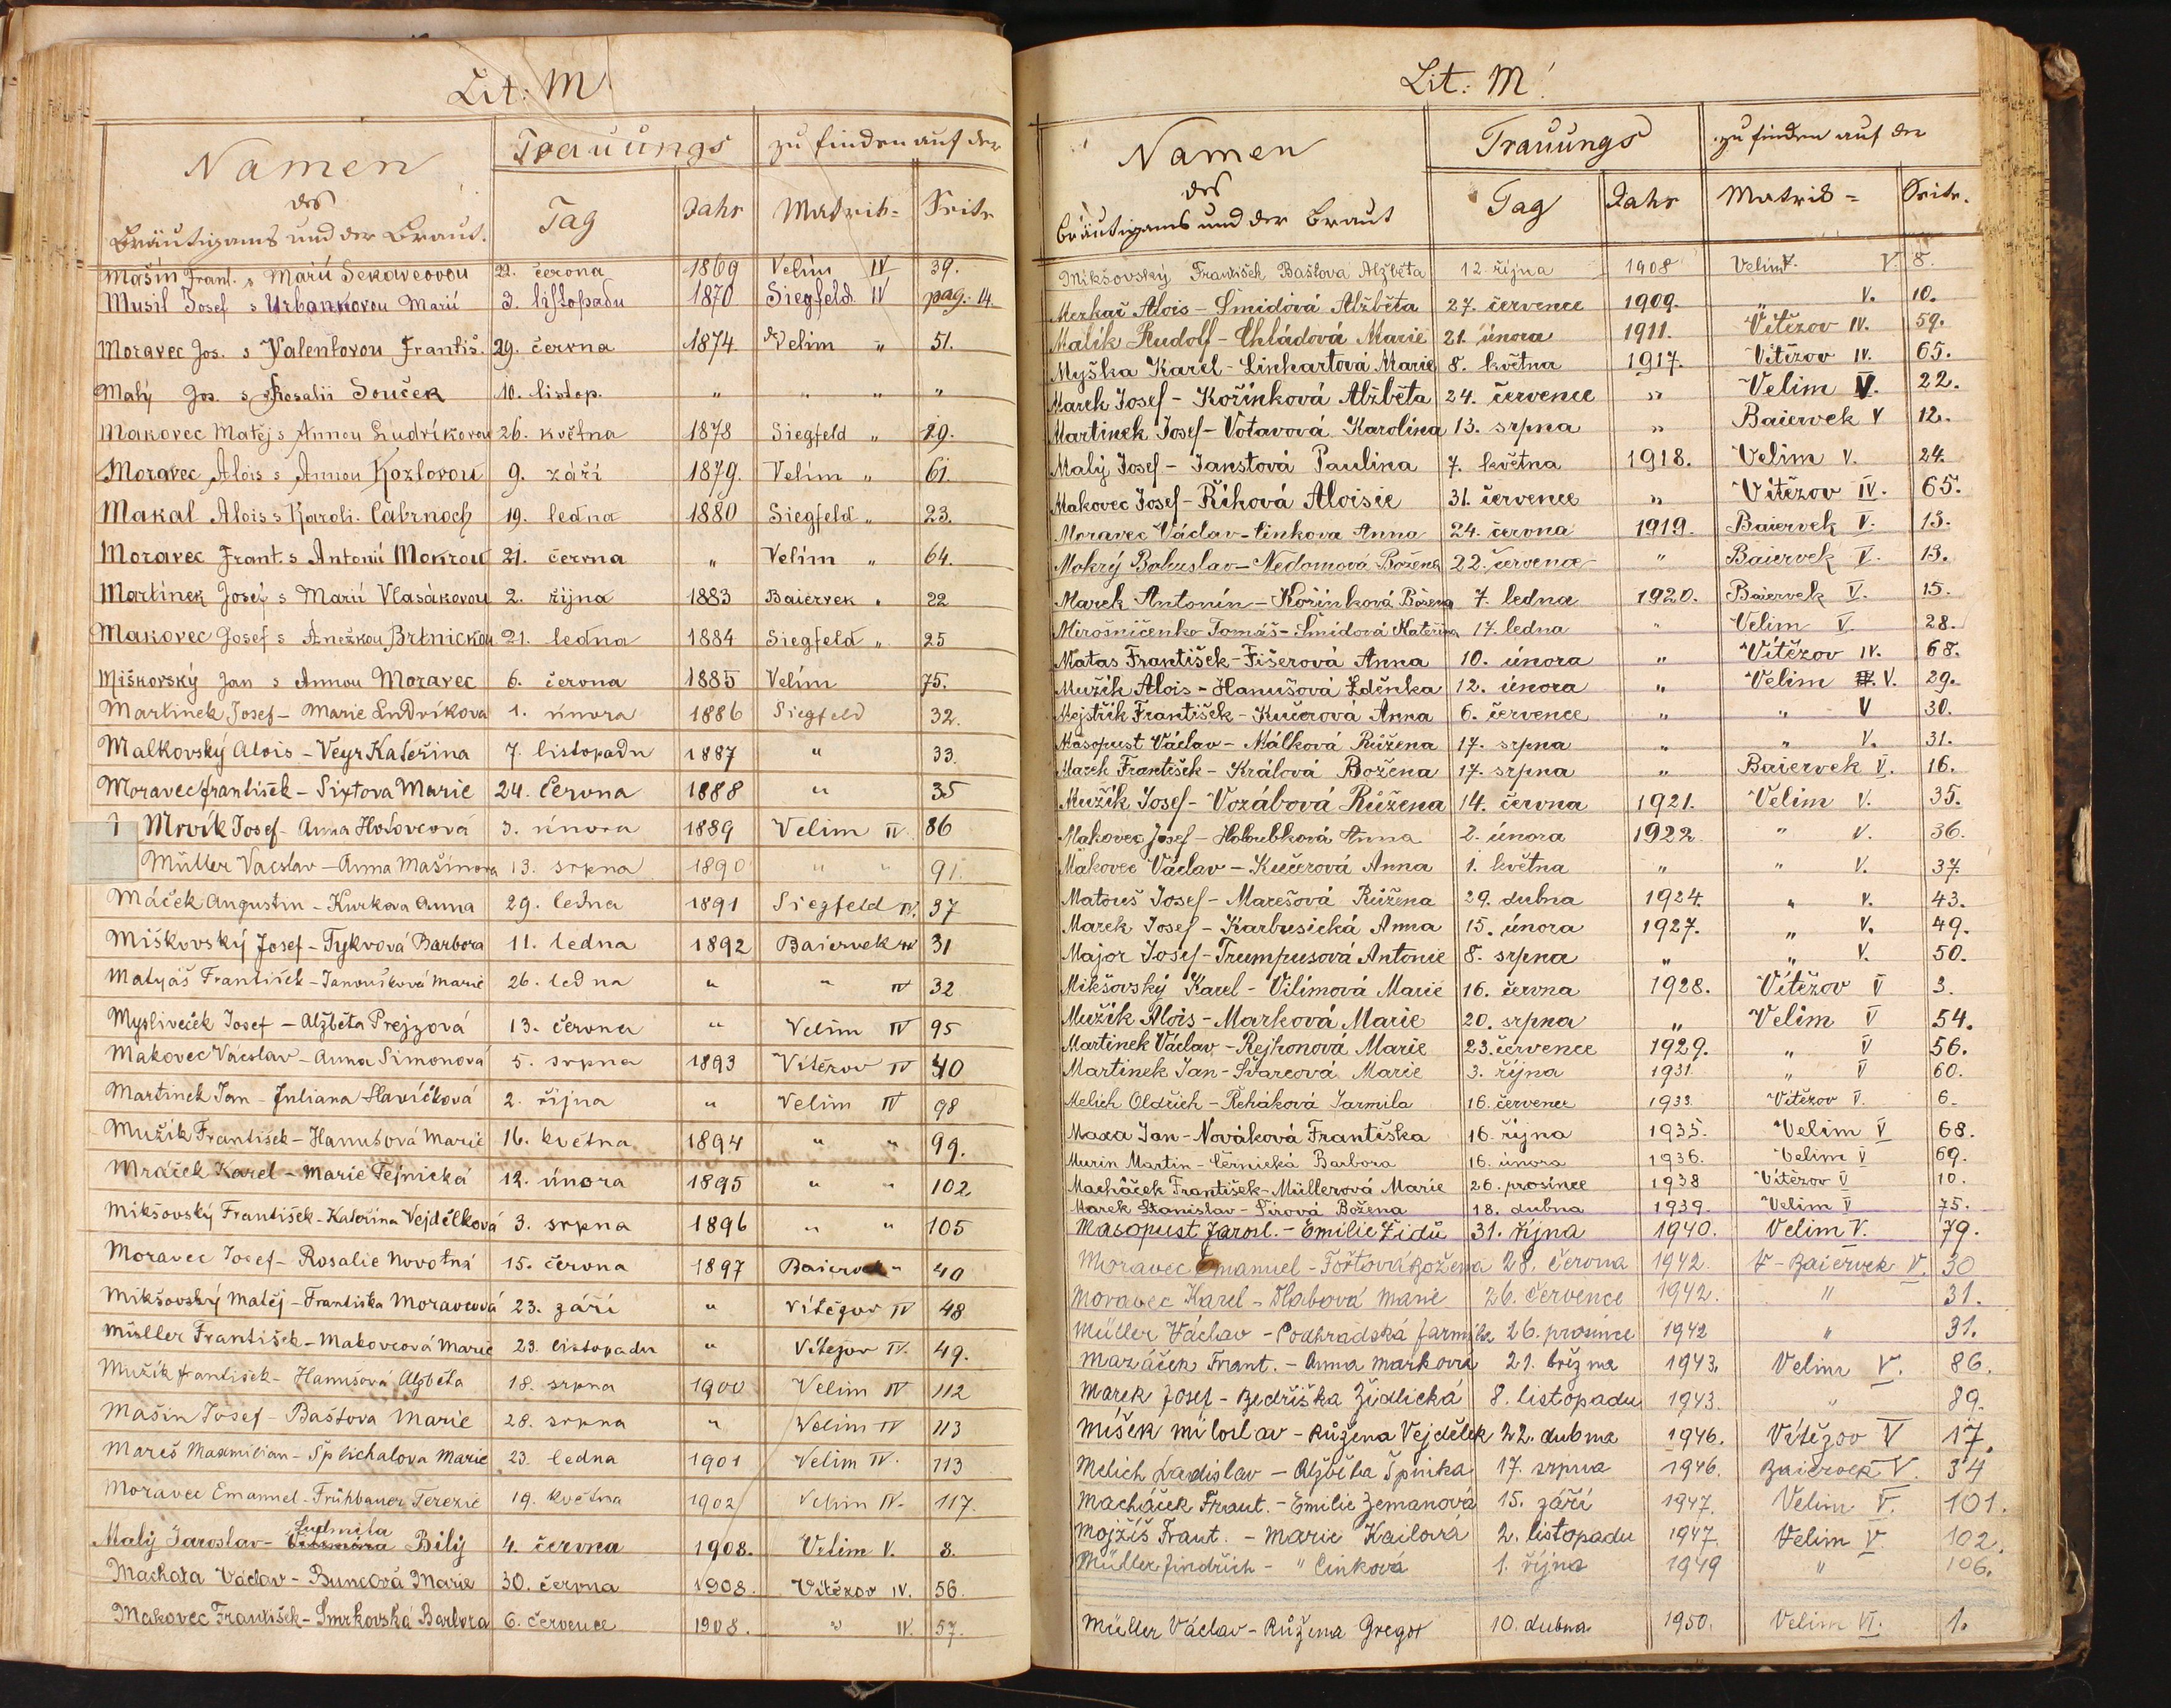 Lit: M
Namen
des
Bräutigams und der Braut.
Trauungs
zu finden auf der
Tag
Jahr
Matrik=
Seite
Mašín Frant. s Marií 22. června 1869 Velim IV 39.
Musil Josef s Urbankovou Marií 3. listopadu 1870 Siegfeld IV pag. 14.
Moravec Jos. s Valentovou Františ. 29. června 1874. Velim " 51.
Malý Jos. s Rosalií Souček 10. listop. " " " "
Makovec Matěj s Annou Ludvíkovou 26. května 1878 Siegfeld " 19.
Moravec Alois s Annou Kozlovou 9. září 1879. Velim " 61.
Makal Alois s Karoli. Cábrnoch 19. ledna 1880 Siegfeld " 23.
Moravec Frant. s Antonií Mokrou 21. června " Velim " 64.
Martínek Josef s Marií Vlasákovou 2. října 1883 Baiervek " 22
Makovec Josef s Anežkou Brtnickou 21. ledna 1884 Siegfeld " 25
Miškovský Jan s Annou Moravec 6. června 1885 Velim 75.
Martinek Josef - Marie Ludvíkova 1. února 1886 Siegfeld 32.
Malkovský Alois - Veyr Kateřina 7. listopadu 1887 " 33.
Moravec František - Sixtova Marie 24. Června 1888 " 35
1 Mrvík Josef - Anna Hotovcová 3. února 1889 Velim IV. 86
Müller Vacslav - Anna Mašínova 13. srpna 1890 " " 91.
Máček Augustin - Kurkova Anna 29. ledna 1891 Siegfeld IV. 37
Miškovský Josef - Tykvová Barbora 11. ledna 1892 Baiervek IV 31
Matyáš František - Janoušková Marie 26. ledna " " IV 32
Mysliveček Josef - Alžběta Prejzová 13. června " Velim IV 95
Makovec Vácslav - Anna Simonová 5. srpna 1893 Vítězov IV 40
Martinek Jan - Juliana Slavíčková 2. října " Velim IV 98
Mužík František - Hanušová Marie 16. května 1894 " " 99.
Mráček Karel - Marie Fejnická 12. února 1895 " " 102
Mikšovský František - Kateřina Vejdělková 3. srpna 1896 " " 105
Moravec Josef - Rosalie Novotná 15. června 1897 Baiervek " 40
Mikšovský Matěj - Františka Moravcová 23. září " Vítězov IV 48
Müller František - Makovcová Marie 23. listopadu " Vítězov IV. 49.
Mužík František - Hanušová Alžběta 18. srpna 1900 Velim IV 112
Mašín Josef - Baštova Marie 28. srpna " Velim IV 113
Mareš Maxmilian - Splichalova Marie 23. ledna 1901 Velim IV. 113
Moravec Emanuel - Frühbauer Terezie 19. května 1902 Velim IV. 117.
Ludmila
Malý Jaroslav - Bílý 4. června 1908. Velim V. 8.
Machata Václav - Buncová Marie 30. června 1908. Vítězov IV. 56.
Makovec František - Smrkovská Barbora 6. července 1908. " IV. 57.
Lit: M!
Namen
des
Bräutigams und der Braut
Trauungs
zu finden auf der
Tag
Jahr
Matrik=
Seite.
Mikšovský František Baštová Alžběta 12. října 1908 Velim V. V. 8.
Merkač Alois - Šmidová Alžběta 27. července 1909. " V. 10.
Malík Rudolf - Chládová Marie 21. února 1911. Vítězov IV. 59.
Myška Karel - Linhartová Marie 8. května 1917. Vítězov IV. 65.
Marek Josef - Kořínková Alžběta 24. července " Velim V. 22.
Martinek Josef - Votavová Karolina 13. srpna " Baiervek V 12.
Malý Josef - Janstová Paulina 7. května 1918. Velim V. 24.
Makovec Josef - Říhová Aloisie 31. července " Vítězov IV. 65.
Moravec Václav - Činkova Anna 24. června 1919. Baiervek V. 13.
Mokrý Bohuslav - Nedomová Božena 22. července " Baiervek V. 13.
Marek Antonín - Kořínková Božena 7. ledna 1920. Baiervek V. 15.
Mirošničenko Tomáš - Šmídová Kateřina 17. ledna " Velim V. 28.
Matas František - Fišerová Anna 10. února " Vítězov IV. 68.
Mužík Alois - Hanušová Zděnka 12. února " Velim V. 29.
Mejstřík František - Kučerová Anna 6. července " " V 30.
Masopust Václav - Málková Růžena 17. srpna " " V. 31.
Marek František - Králová Božena 17. srpna " Baiervek V. 16.
Mužík Josef - Vozábová Růžena 14. června 1921. Velim V. 35.
Makovec Josef - Holoubková Anna 2. února 1922. " V. 36.
Makovec Václav - Kučerová Anna 1. května " " V. 37.
Matouš Josef - Marešová Růžena 29. dubna 1924. " V. 43.
Marek Josef - Karbusická Anna 15. února 1927. " V. 49.
Major Josef - Trumpusová Antonie 8. srpna " " V. 50.
Mikšovský Karel - Vilímová Marie 16. června 1928. Vítězov V 3.
Mužík Alois - Marková Marie 20. srpna " Velim V 54.
Martinek Václav - Rejhonová Marie 23. července 1929. " V 56.
Martinek Jan - Švarcová Marie 3. října 1931 " V 60.
Melich Oldřich - Řeháková Jarmila 16. července 1933. Vítězov V. 6.
Maxa Jan - Nováková Františka 16. října 1935. Velim V 68.
Murin Martin - Černická Barbora 16. února 1936. Velim V 69.
Macháček František - Müllerová Marie 26. prosince 1938 Vítězov V 10.
Marek Stanislav - Šírová Božena 18. dubna 1939. Velim V 75.
Masopust Jarosl. - Emilie Židů 31. října 1940. Velim V. 79.
Moravec Emanuel - Fořtová Božena 28. června 1942. V - Baiervek V. 30
Moravec Karel - Hlabová Marie 26. července 1942. " 31.
Müller Václav - Podhradská Jarmila 26. prosince 1942 " 31.
Mazáček Frant. - Anna Markova 21. března 1943. Velim V. 86.
Marek Josef - Bedřiška Židlická 8. listopadu 1943. " 89.
Míšek Miloslav - Růžena Vejdělek 22. dubna 1946. Vítězov V 17.
Melich Ladislav - Alžběta Špinka 17. srpna 1946. Baiervek V. 34
Macháček Frant. - Emilie Zemanová 15. září 1947. Velim V. 101.
Mojžíš Frant. - Marie Kailová 2. listopadu 1947. Velim V. 102.
Müller Jindřich - " Cinková 1. října 1949 " 106.
Müller Václav - Růžena Gregor 10. dubna 1950. Velim VI. 1.